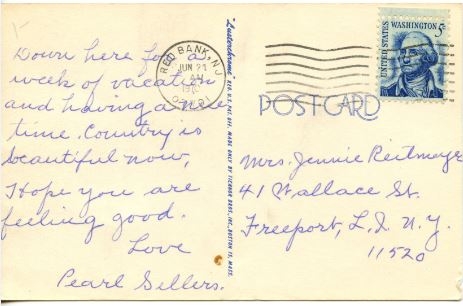 Down here for a
week of vacation
and having a nice
time. Country is
beautiful now,
Hope you are
feeling good.
Love
Pearl Sellers.
"Lusterchrome" REG. U.S. PAT. OFF. MADE ONLY BY TICHNOR BROS., INC., BOSTON 15, MASS.
RED BANK, N.J.
JUN 21
AM
UNITED STATES
WASHINGTON 5c
POST CARD
Mrs. Jennie Reitmeyer
41 Wallace St.
Freeport, L.I. N.Y.
11520